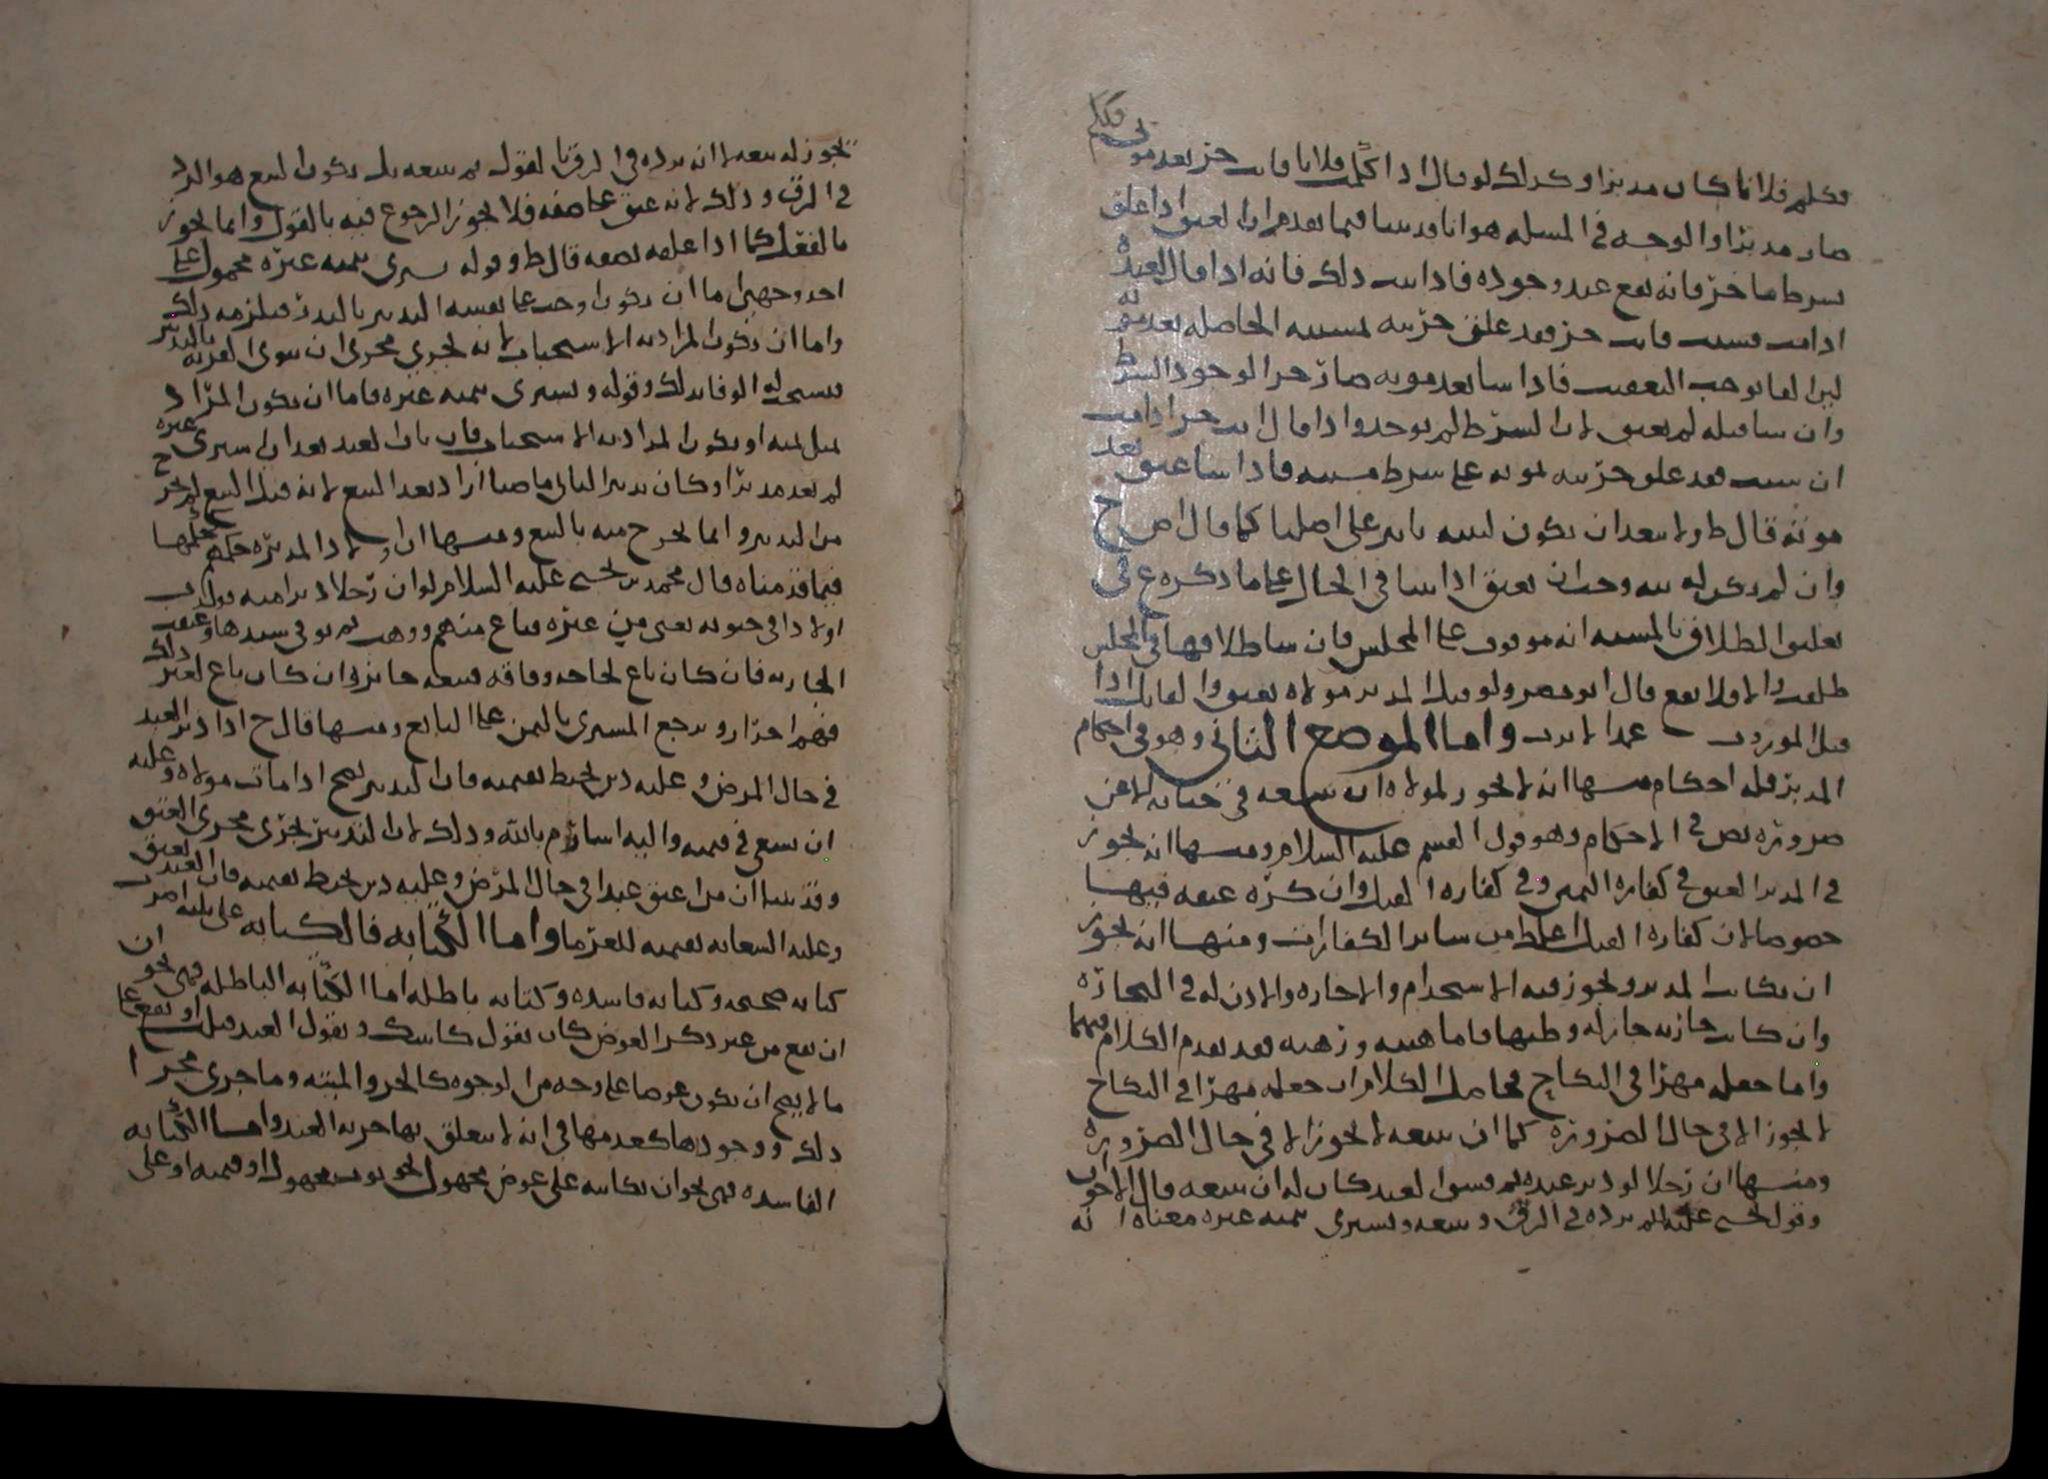 فكلم فلانا كان مدبرا وكذلك لو قال اذا كلمت فلانا فانت حر بعد موتي فكلم
صار مدبرا والوجه في المسله هو انا قد بينا فيما تقدم ان العتق اذا علق
بشرط ما خر فانه يقع عند وجوده فاذا ثبت ذلك فانه اذا قال لعبده
اذا مت فشئت فانت حر فقد علق حريته بمشيته الحاصله بعد موته
لان الفا توجب التعقيب فاذا شا بعد موته صار حرا لوجود الشرط
وان شا قبله لم يعتق لان الشرط لم يوجد واذا قال انت حر اذا مت
ان شئت فقد علق حريته بموته على شرط مشيته فاذا شا عتق بعد
موته قال ط ولا يبعد ان يكون لنيته تاثير على اصلنا كما قال اص ح
وان لم يكن له نيه وجب ان يعتق اذا شا في الحال على ما ذكره ع في
تعليق الطلاق بالمشيه انه موقوف على المجلس فان شا طلاقها في المجلس
طلقت والا فلا يقع قال ابو مضر ولو قتل المدبر مولاه يعتق والقاتل اذا
قتل الموروث عمدا لا يرث واما الموضع الثاني وهو في احكام
المدبر فله احكام منها انه لا يجوز لمولاه ان يبيعه في حياته لا عن
ضروره نص في الاحكام وهو قول القسم عليه السلام ومنها انه يجوز
في المدبر العتق في كفاره اليمين وفي كفاره القتل وان كره عتقه فيها
خصوصا لان كفاره القتل اغلظ من ساير الكفارات ومنها انه يجوز
ان يكاتب المدبر ويجوز فيه الاستخدام والاجاره والاذن له في التجاره
وان كانت جاريه جاز له وطيها فاما هبته ورهنه فقد تقدم الكلام فيهما
واما جعله مهرا في النكاح فحاصل الكلام ان جعله مهرا في النكاح
لا يجوز الا في حال الضروره كما ان بيعه لا يجوز الا في حال الضروره
ومنها ان رجلا لو دبر عبده ثم فسق العبد كان له ان يبيعه قال الاخوان
وقول يحيى عليه السلم يرده في الرق وبيعه ويشتري بثمنه غيره معناه انه
يجوز له بيعه لا انه يرده في الرق بالقول ثم يبيعه بل يكون البيع هو الرد
في الرق وذلك لانه عتق على صفه فلا يجوز الرجوع فيه بالقول وانما يجوز
بالفعل كما اذا علقه بصفه قال ط وقوله يشتري بثمنه غيره محمول على
احد وجهين اما ان يكون اوجب على نفسه التدبير بالنذر فيلزمه ذلك
واما ان يكون المراد به الاستحباب لانه يجري مجرى ان ينوي القربه بالتدبير
فيستحب له الوفا بذلك وقوله ويشتري بثمنه غيره فاما ان يكون المراد
مثل ثمنه او يكون المراد به الاستحباب فان تاب العبد بعد ان اشترى غيره
لم يعد مدبرا وكان تدبير الثاني ماضيا اراد بعد البيع لانه قبل البيع لم يخرج
من التدبير وانما يخرج منه بالبيع ومنها ان اولاد المدبره حكمهم حكمها
فيما قدمناه قال محمد بن يحيى عليه السلام لو ان رجلا دبر امته فولدت
اولادا في حيوته يعنى من غيره فباع منهم ووهب ثم توفي سيدها وعتقت
الجاريه فان كان باع لحاجه وفاقه فبيعه جايز وان كان باع لغير ذلك
فهم احرار ويرجع المشتري بالثمن على البايع ومنها قال ح اذا دبر العبد
في حال المرض وعليه دين يحيط بقيمته فان التدبير يصح اذا مات مولاه وعليه
ان يسعى في قيمته واليه اشار م بالله وذلك لان التدبير يجري مجرى العتق
وقد بينا ان من اعتق عبدا في حال المرض وعليه دين يحيط بقيمته فان العبد يعتق
وعليه السعايه بقيمته للغرما واما الكتابه فالكتابه على ثلثه اضرب
كتابه صحيحه وكتابه فاسده وكتابه باطله اما الكتابه الباطله فهي نحو ان
ان يقع من غير ذكر العوض كان يقول كاتبتك ويقول العبد قبلت او يقع على
ما لا يصح ان يكون عوضا على وجه من الوجوه كالخمر والميته وما جرى مجرا
ذلك ووجودها كعدمها في انه لا يتعلق بها حريه العبد واما الكتابه
الفاسده فهي نحو ان يكاتبه على عوض مجهول نحو ثوب مجهول او قيمته او على